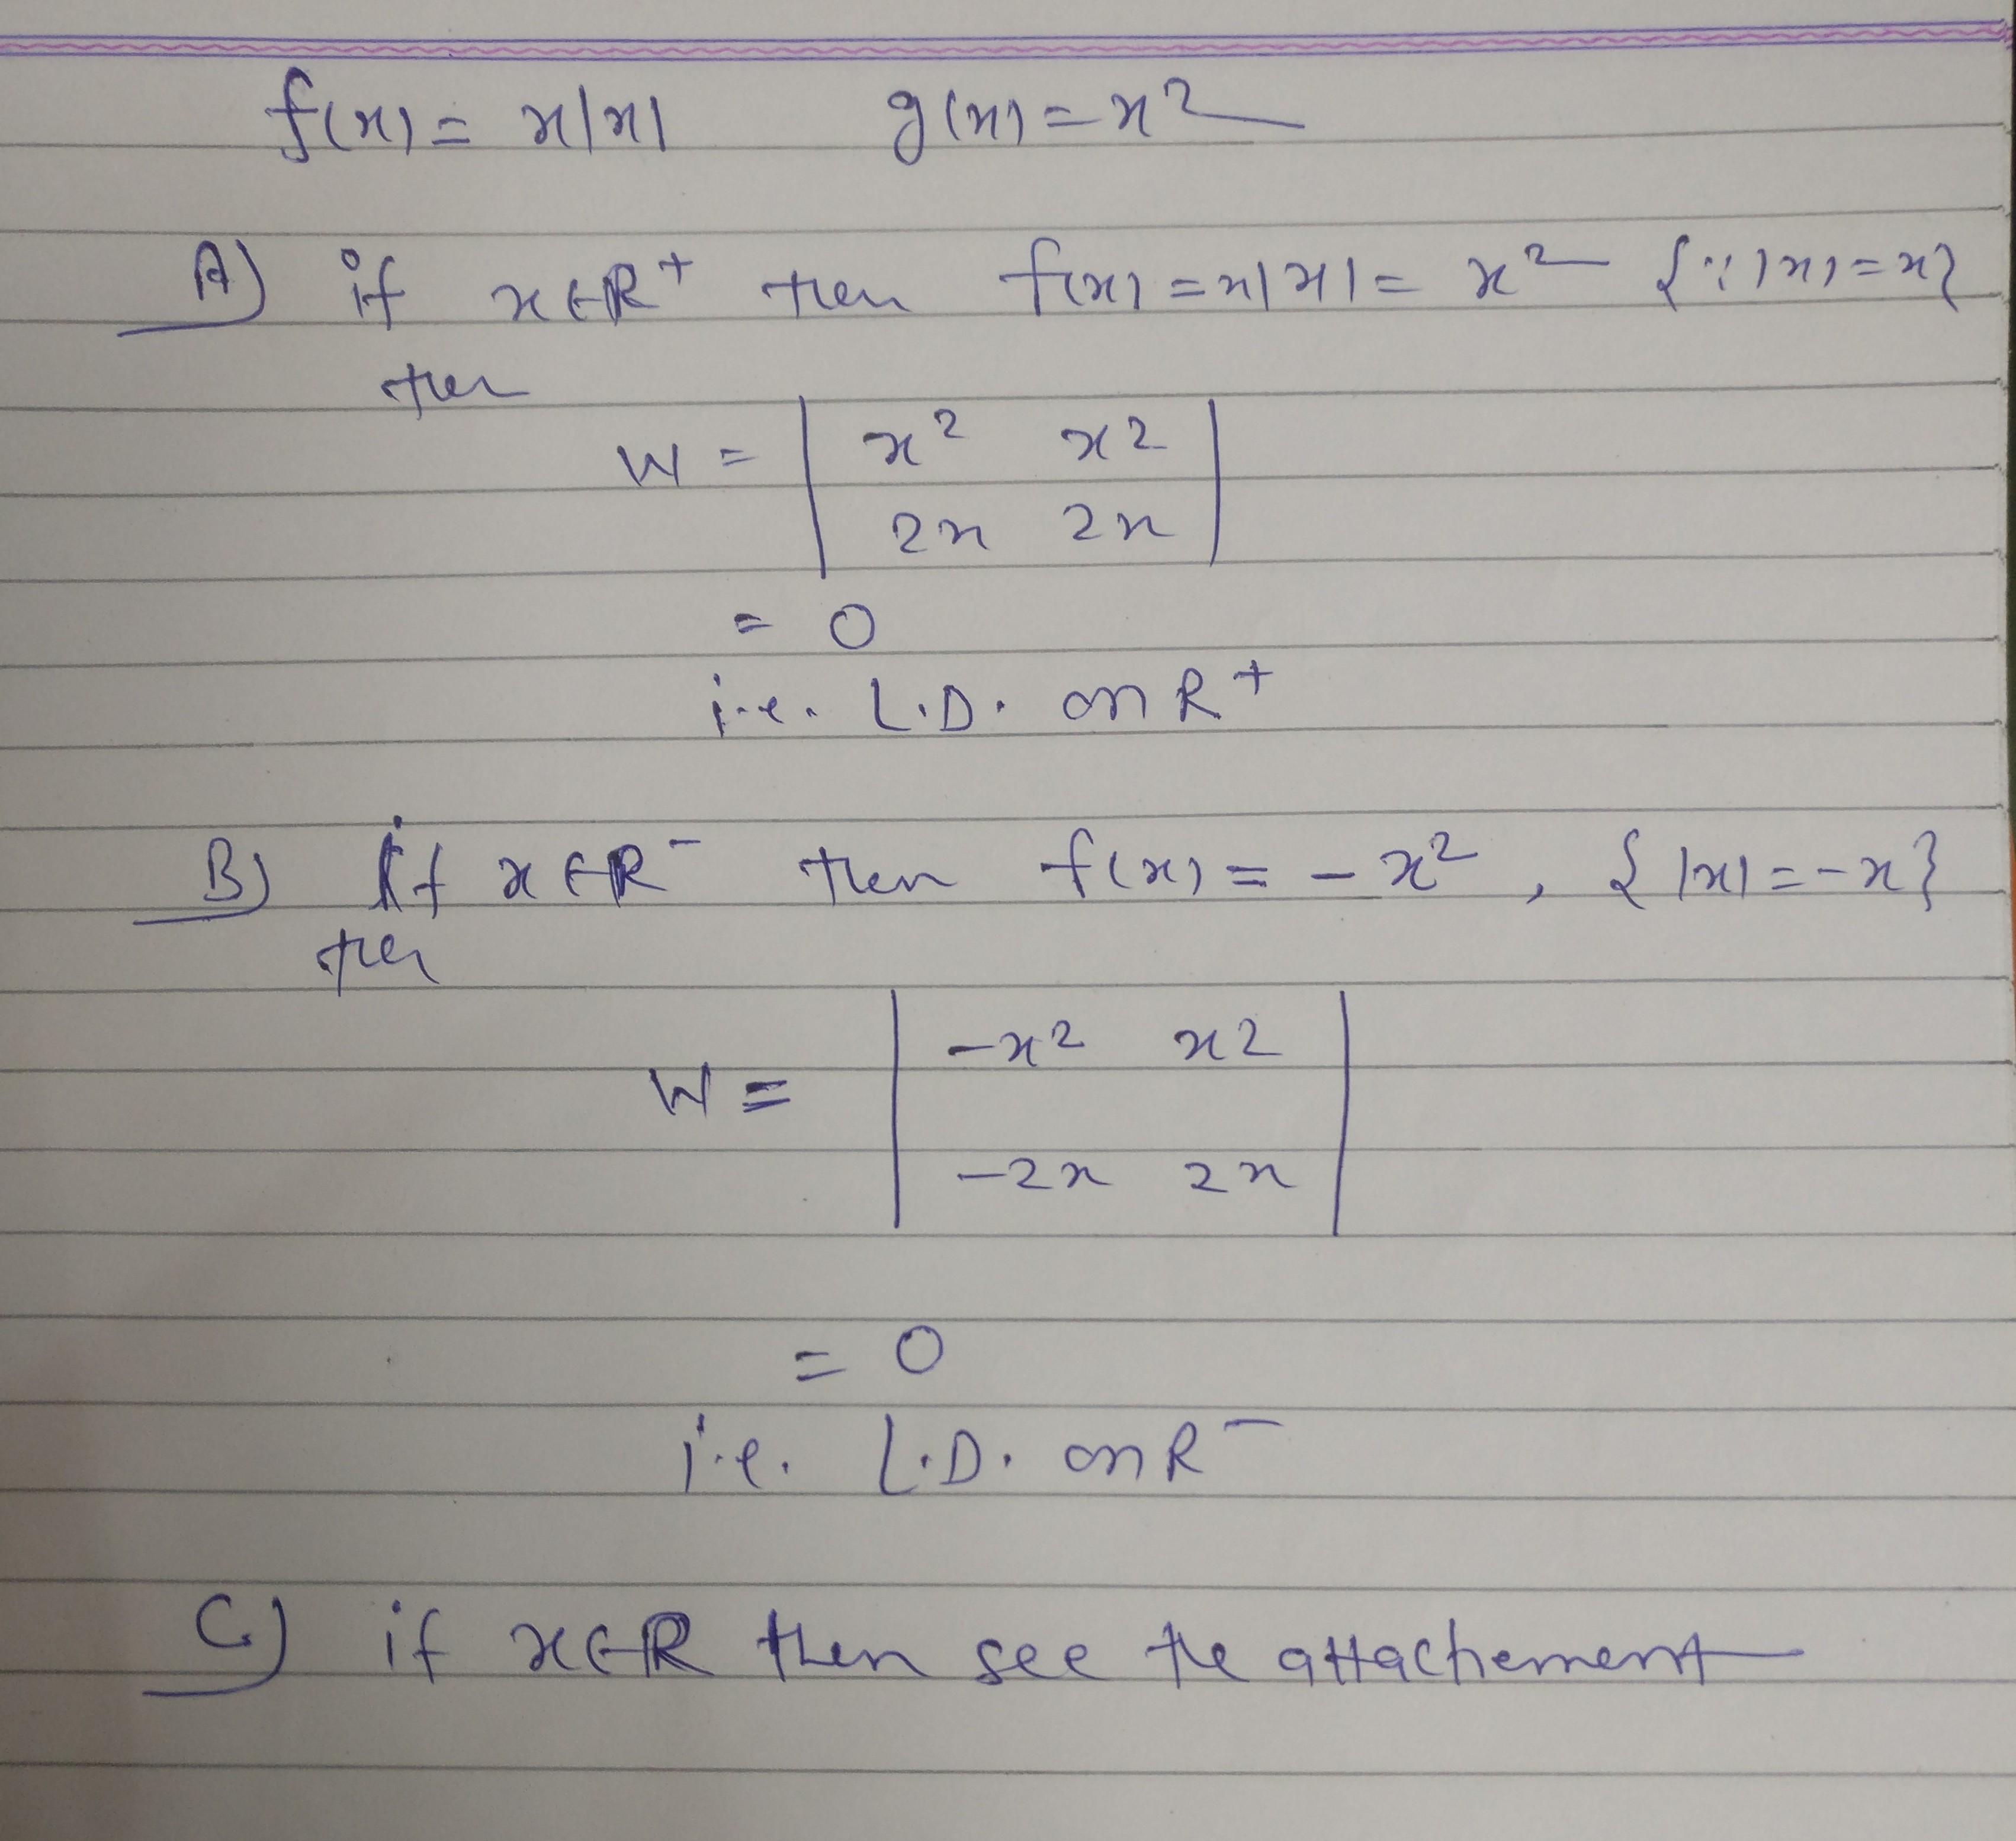 f(x) = x|x| g(x) = x²
A) if x∈R⁺ then f(x) = x|x| = x² {∵ |x| = x}
then
W = | x² x² |
| 2x 2x |
= 0
i.e. L.D. on R⁺
B) If x∈R⁻ then f(x) = - x² , { |x| = -x}
then
W = | -x² x² |
| -2x 2x |
= 0
i.e. L.D. on R⁻
C) if x∈R then see the attachement